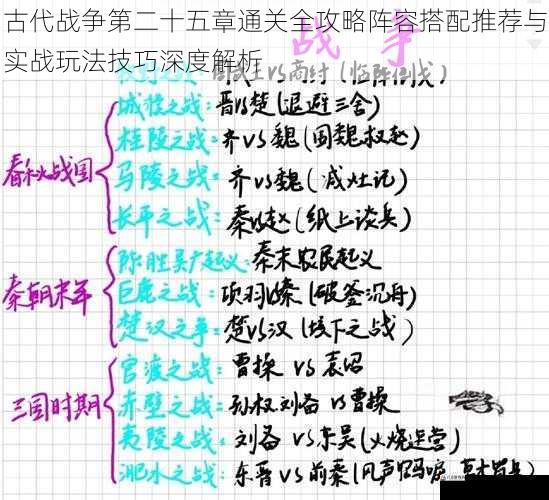 古代战争第二十五章通关全攻略阵容搭配推荐与
实战玩法技巧深度解析
战争
王vs商纣(临阵倒戈)
春秋战国
城濮之战:晋vs楚(退避三舍)
桂陵之战:齐vs魏(围魏救赵)
马陵之战:齐vs魏(减灶记)
长平之战:秦vs赵(纸上谈兵)
秦朝末年
陈胜吴广起义:秦末农民起义
巨鹿之战:项羽vs秦(破釜沉舟)
楚汉之争:楚vs汉(垓下之战)
三国时期
官渡之战:曹操 vs 袁绍
赤壁之战:孙权.刘备 vs 曹操
夷陵之战:刘备 vs 东吴(火烧连营)
淝水之战:东晋 vs 前秦(风声鹤唳